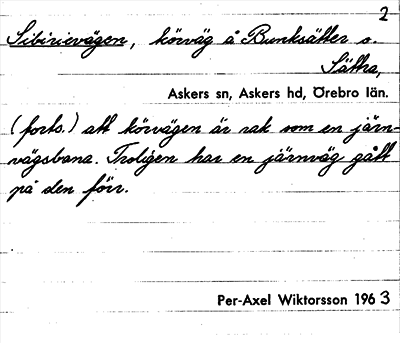 2
Sibirievägen, körväg å Bunksätter o.
Sättra,
Askers sn, Askers hd, Örebro län.
(forts.) att körvägen är rak som en järn-
vägsbana. Troligen har en järnväg gått
på den förr.
Per-Axel Wiktorsson 1963